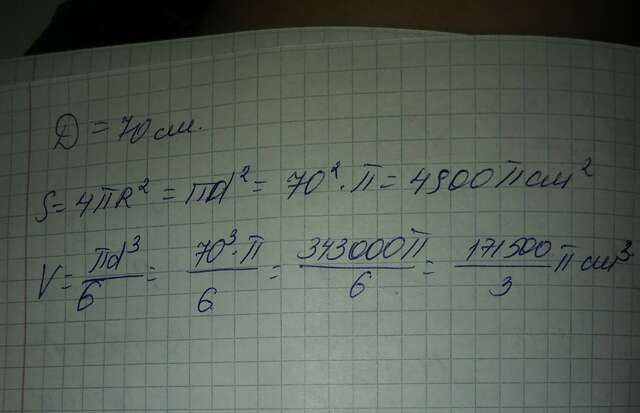 D = 70 см.
S = 4πR² = πd² = 70² · π = 4900π см²
V = πd³/6 = 70³ · π/6 = 343000π/6 = 171500/3 π см³